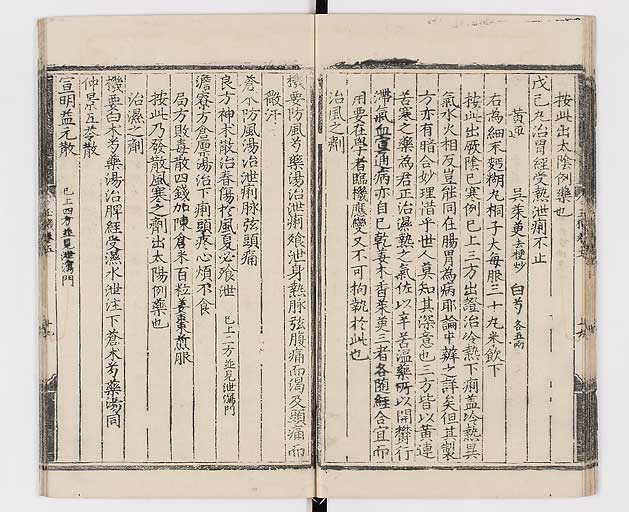 按此出太陰例藥也
戊己丸治胃經受熱泄痢不止
黃連 吳茱萸去梗炒 白芍各五兩
右為細末麪糊丸桐子大每服三十丸米飲下
按此出厥陰已寒例已上三方出證治冷熱下痢蓋冷熱異
氣水火相反豈能同在腸胃為病耶論中辨之詳矣但其製
方亦有暗合妙理惜乎世人莫知其深意也三方皆以黃連
苦寒之藥為君正治濕熱之氣佐以辛苦溫藥所以開鬱行
滯氣血宣通病亦自已乾姜木香茱萸三者各隨經合宜而
用要在學者臨機應變又不可拘執於此也
治風之劑
機要防風芍藥湯治泄痢飧泄身熱脉弦腹痛而渴及頭痛而
微汗
蒼朮防風湯治泄痢脉弦頭痛
良方神朮散治春傷於風夏必飧泄 已上二方並見泄瀉門
澹寮方倉廩湯治下痢頭疼心煩不食
局方敗毒散四錢加陳倉米百粒姜棗煎服
按此乃發散風寒之劑出太陽例藥也
治濕之劑
機要白朮芍藥湯治脾經受濕水泄注下蒼朮芍藥湯同
仲景五苓散
宣明益元散 已上四方並見泄瀉門